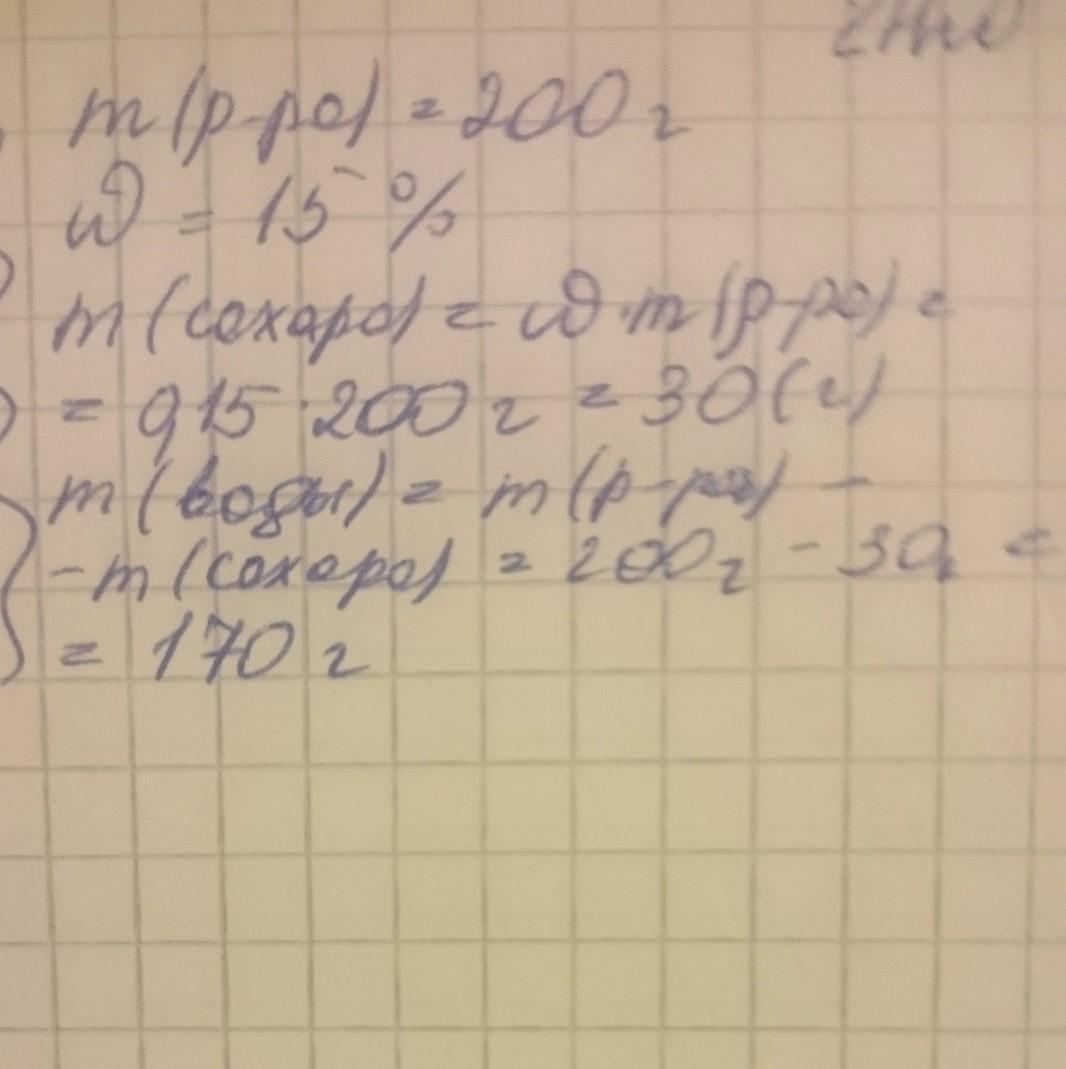 m(р-ра) = 200 г
ω = 15 %
m(сахара) = ω · m(р-ра) =
= 0,15 · 200 г = 30 (г)
m(воды) = m(р-ра) -
- m(сахара) = 200 г - 30 г =
= 170 г